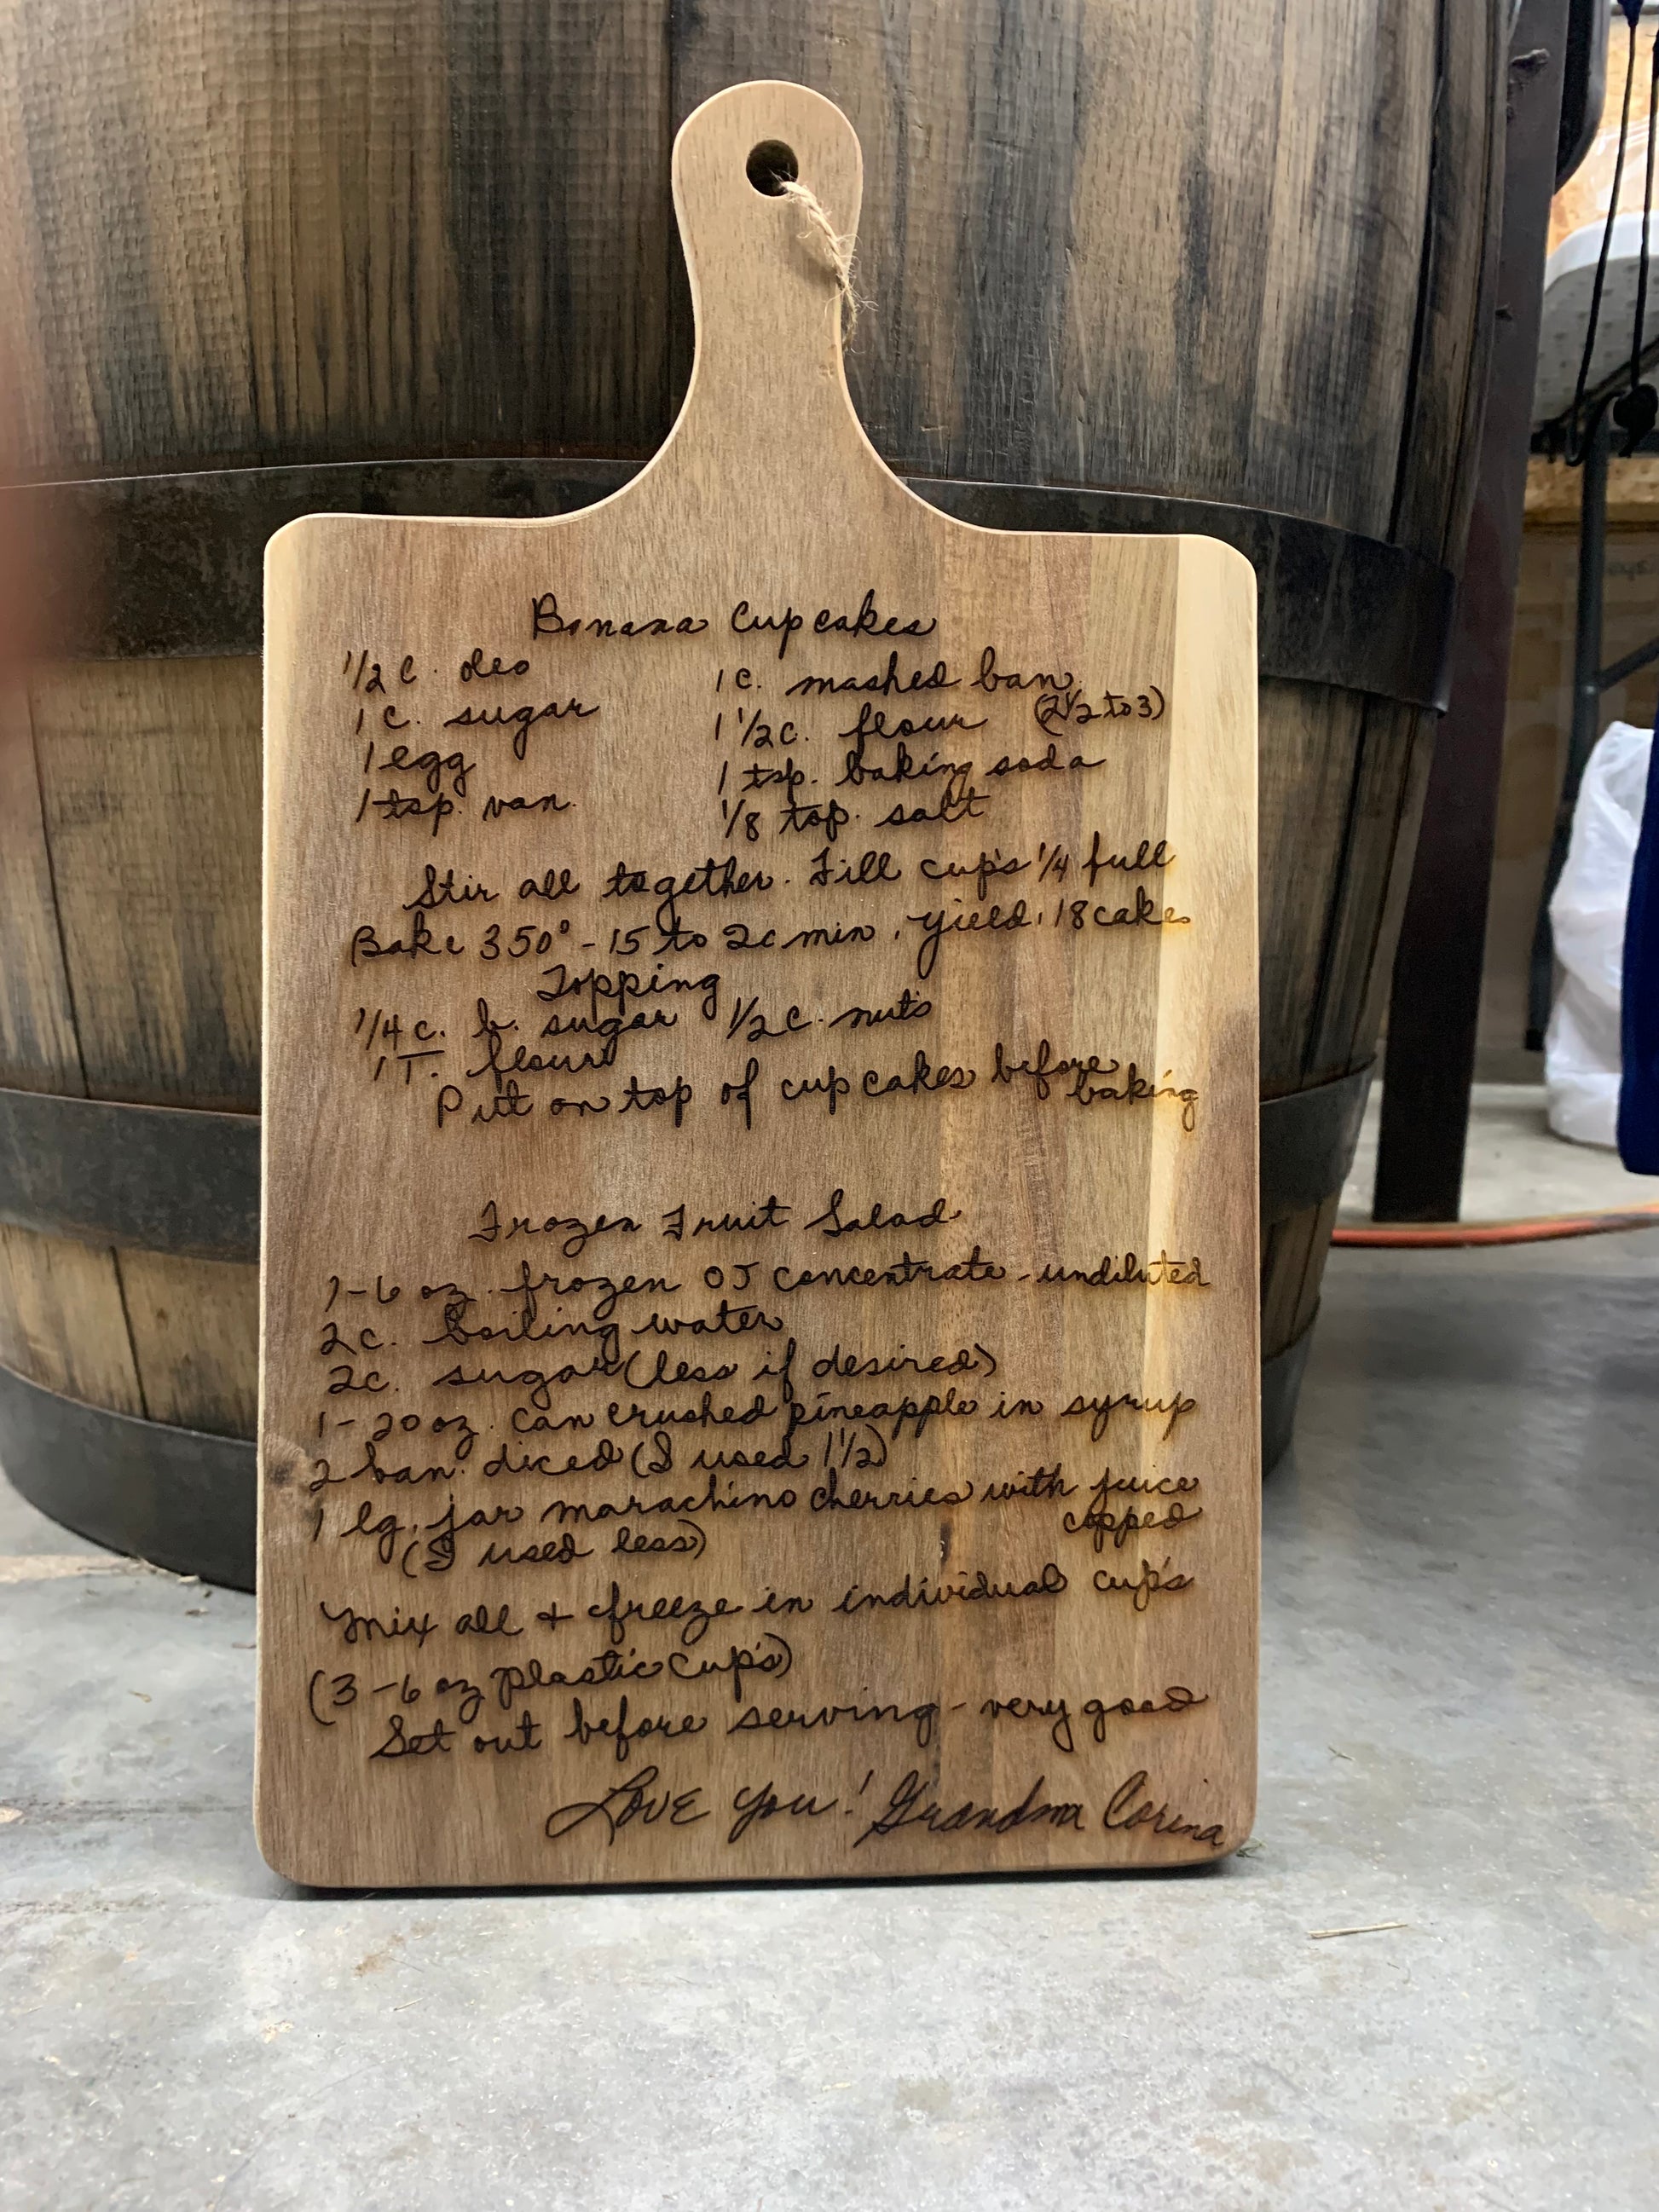 Banana Cupcakes
1/2 C. oleo
1 C. sugar
1 egg
1 tsp. van.
1 C. mashed ban.
(2 1/2 to 3)
1 1/2 C. flour
1 tsp. baking soda
1/8 tsp. salt
Stir all together. Fill cup's 1/4 full
Bake 350° - 15 to 20 min. Yield: 18 cakes
Topping
1/4 c. b. sugar 1/2 c. nuts
1 T. flour
Put on top of cupcakes before
baking
Frozen Fruit Salad
1-6 oz. frozen OJ concentrate - undiluted
2 c. boiling water
2 c. sugar (less if desired)
1-20 oz. can crushed pineapple in syrup
2 ban. diced (I used 1 1/2)
1 lg. jar marachino cherries with juice
copped
(I used less)
Mix all + freeze in individual cup's
(3-6 oz plastic cup's)
Set out before serving - very good
Love you! Grandma Corina